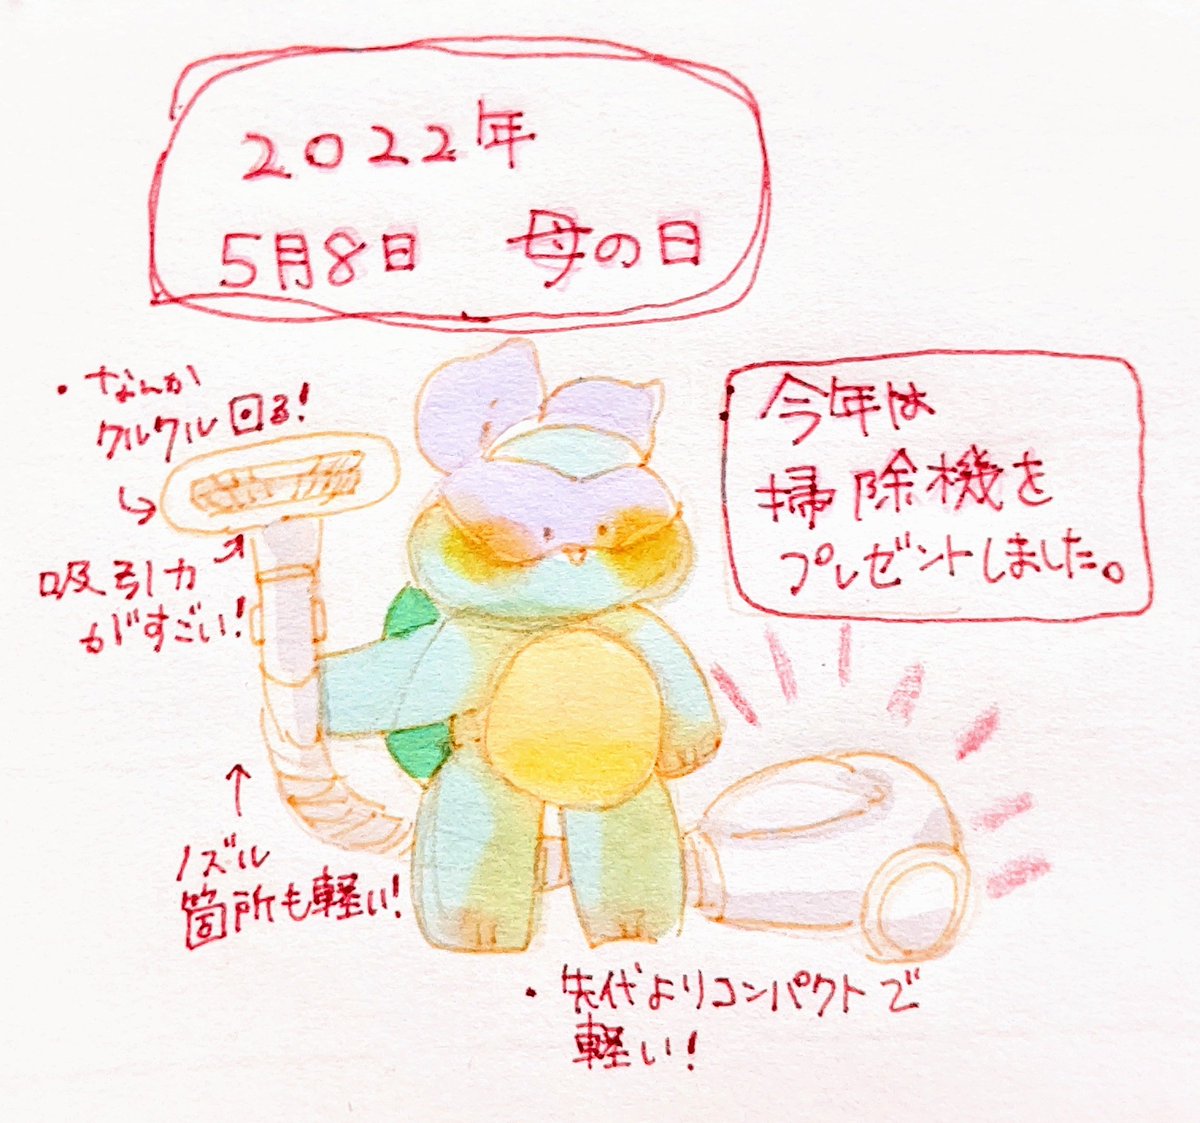 2022年
5月8日 母の日
・なんか
クルクル回る!
今年は
掃除機を
プレゼントしました。
吸引力
がすごい!
ノズル
箇所も軽い!
・先代よりコンパクトで
軽い!